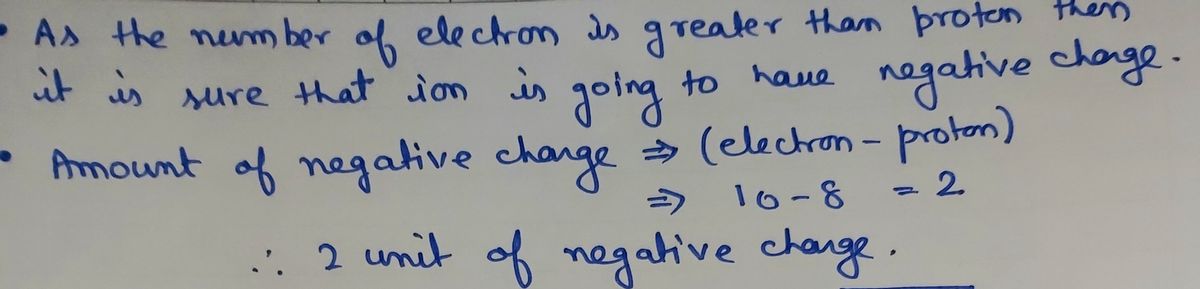 • As the number of electron is greater than proton then
it is sure that ion is going to have negative charge.
• Amount of negative charge ⇒ (electron - proton)
⇒ 10 - 8 = 2
∴ 2 unit of negative charge.